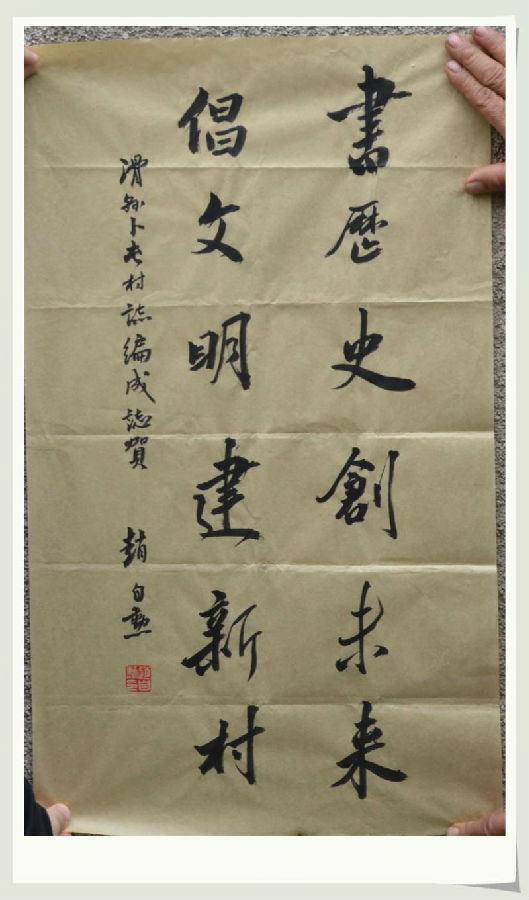 書歷史創未来
倡文明建新村
滑縣卜老村誌編成誌賀
趙自勲